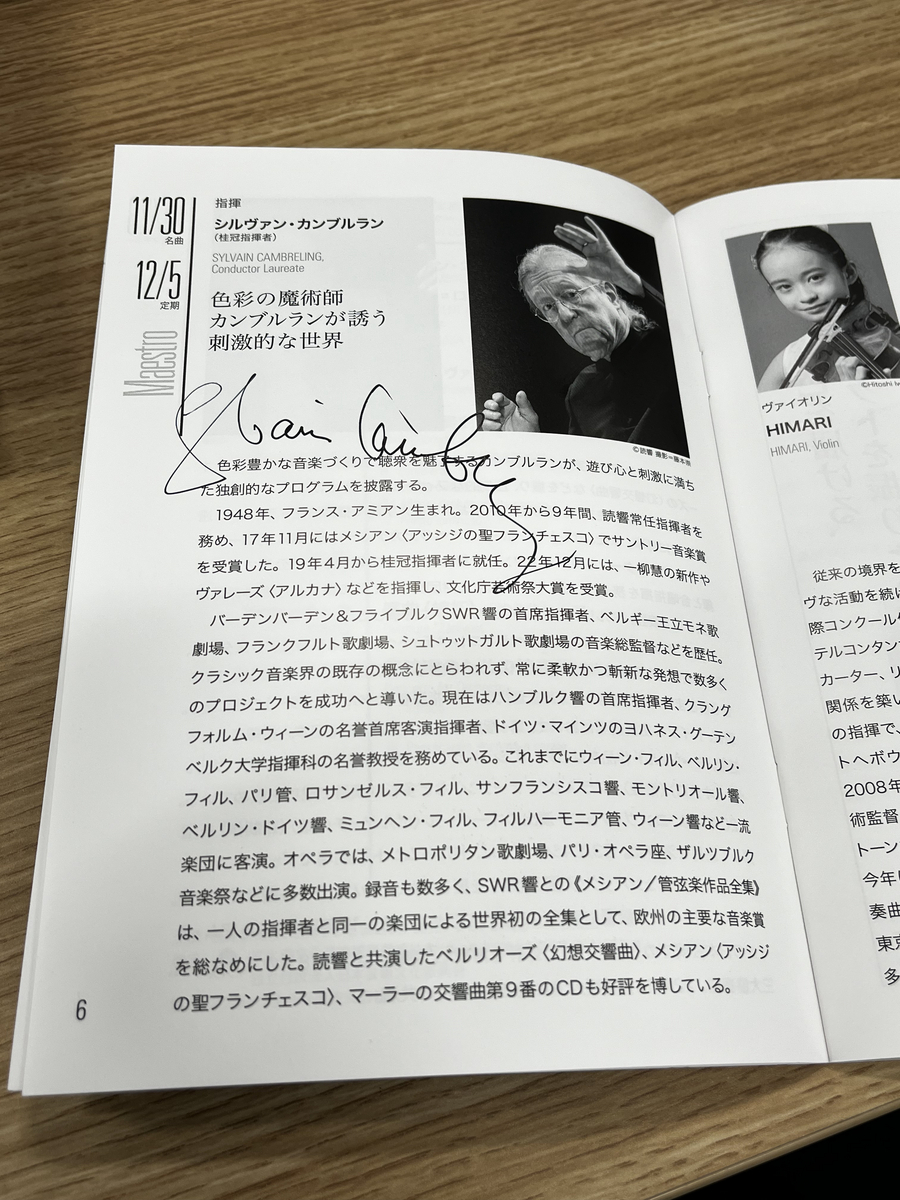 11/30
名曲
12/5
定期
Maestro
指揮
シルヴァン・カンブルラン
(桂冠指揮者)
SYLVAIN CAMBRELING,
Conductor Laureate
色彩の魔術師
カンブルランが誘う
刺激的な世界
©読響 撮影=藤本崇
色彩豊かな音楽づくりで聴衆を魅了するカンブルランが、遊び心と刺激に満ち
た独創的なプログラムを披露する。
1948年、フランス・アミアン生まれ。2010年から9年間、読響常任指揮者を
務め、17年11月にはメシアン〈アッシジの聖フランチェスコ〉でサントリー音楽賞
を受賞した。19年4月から桂冠指揮者に就任。22年12月には、一柳慧の新作や
ヴァレーズ〈アルカナ〉などを指揮し、文化庁芸術祭大賞を受賞。
バーデンバーデン&フライブルクSWR響の首席指揮者、ベルギー王立モネ歌
劇場、フランクフルト歌劇場、シュトゥットガルト歌劇場の音楽総監督などを歴任。
クラシック音楽界の既存の概念にとらわれず、常に柔軟かつ斬新な発想で数多く
のプロジェクトを成功へと導いた。現在はハンブルク響の首席指揮者、クラング
フォルム・ウィーンの名誉首席客演指揮者、ドイツ・マインツのヨハネス・グーテン
ベルク大学指揮科の名誉教授を務めている。これまでにウィーン・フィル、ベルリン・
フィル、パリ管、ロサンゼルス・フィル、サンフランシスコ響、モントリオール響、
ベルリン・ドイツ響、ミュンヘン・フィル、フィルハーモニア管、ウィーン響など一流
楽団に客演。オペラでは、メトロポリタン歌劇場、パリ・オペラ座、ザルツブルク
音楽祭などに多数出演。録音も数多く、SWR響との《メシアン/管弦楽作品全集》
は、一人の指揮者と同一の楽団による世界初の全集として、欧州の主要な音楽賞
を総なめにした。読響と共演したベルリオーズ〈幻想交響曲〉、メシアン〈アッシジ
の聖フランチェスコ〉、マーラーの交響曲第9番のCDも好評を博している。
6
©Hitoshi
ヴァイオリン
HIMARI
HIMARI, Violin
従来の境界を
ヴな活動を続け
際コンクール
テルコンタン
カーター、リ
関係を築い
の指揮で、
トヘボウ
2008年
術監督
トーン
今年
奏曲
東京
多